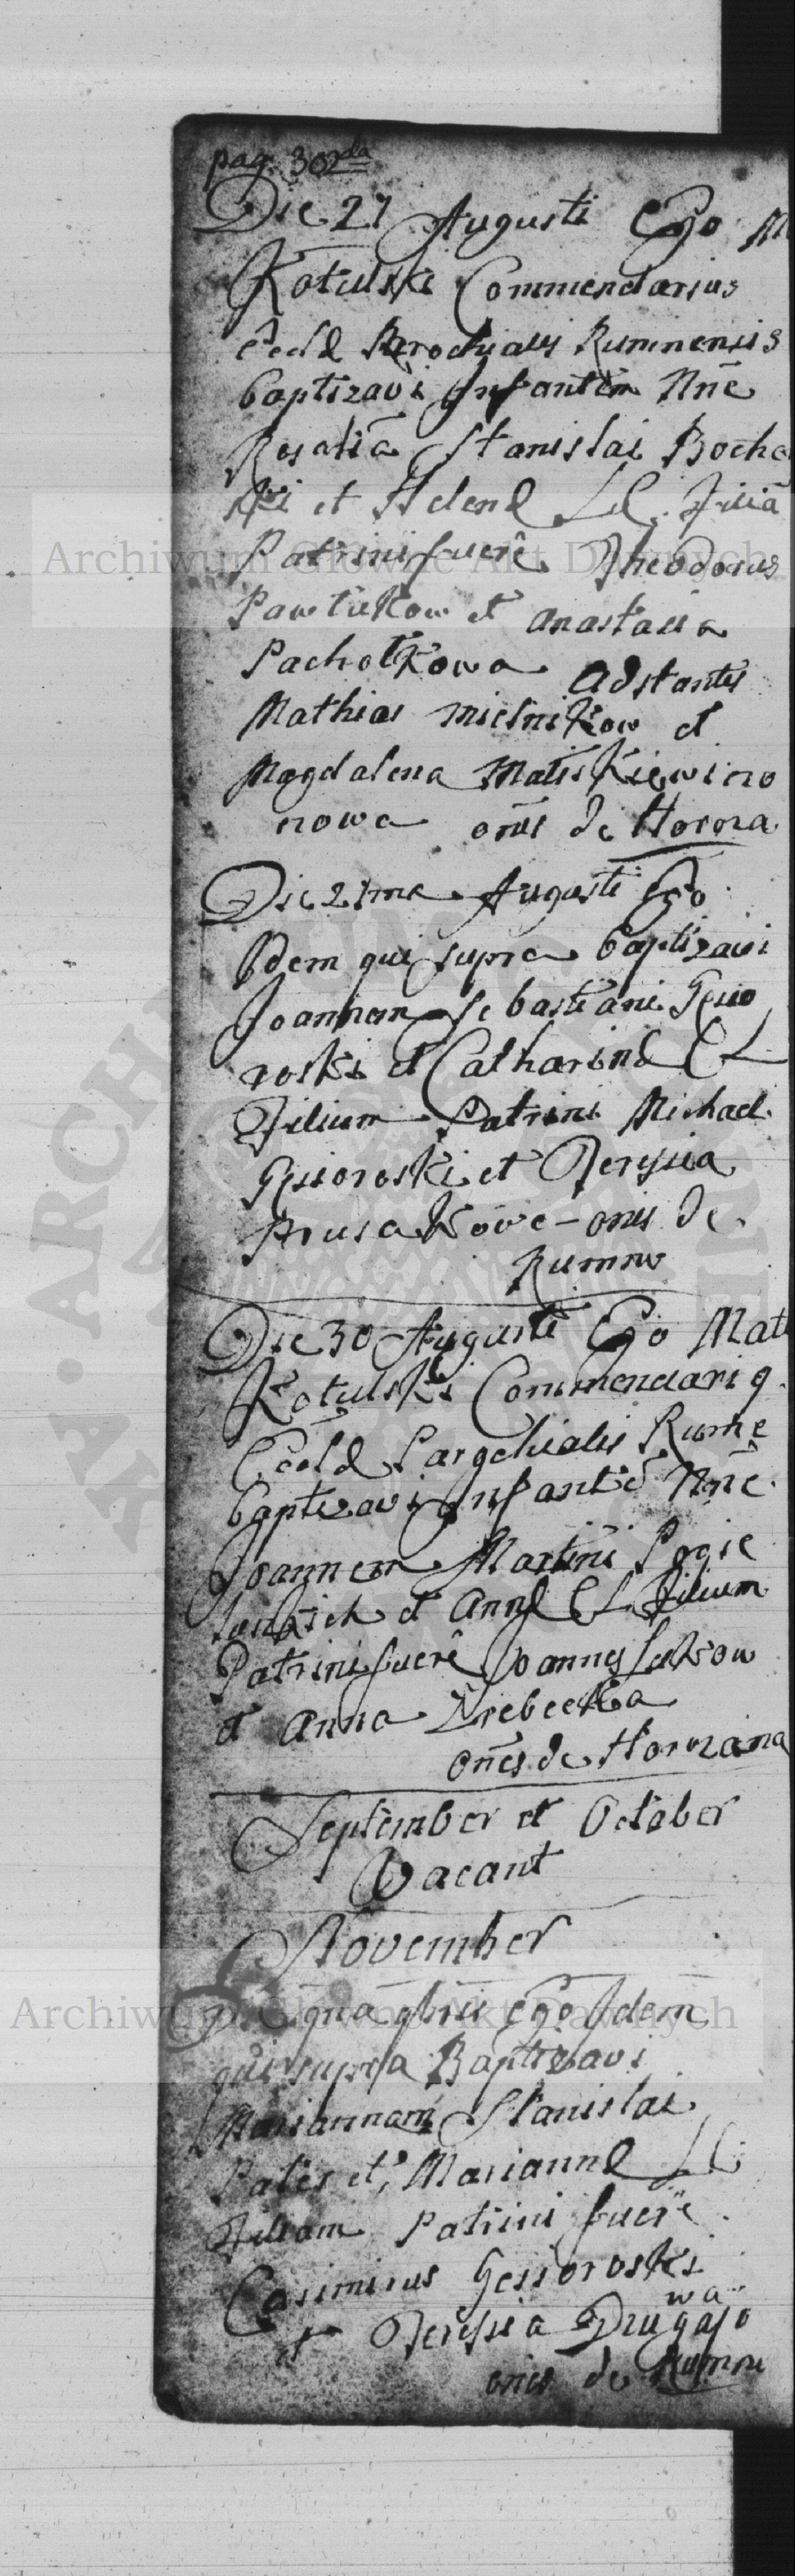 pag. 302da
Die 27 Augusti Ego M
Kotulski Commendarius
Eccl Parochialis Rumnensis
baptizavi Infantem Nne
Rosaliā Stanislai Bocha
ski et Helenę LC. Filiā
Patrini fuerê Theodorus
Pawlukow et Anastasia
Pacholkowa Adstantes
Mathias Mielnikow et
Magdalena Matiskiewiczo
nowa oms de Horoza
Die 21ma Augusti Ego
Idem qui supra baptizavi
Joannem Sebastiani Gęsio
roski et Catharinę CL
Filium Patrini Michael
Gęsioroski et Teressia
Prusakowa - oms de
Rumno
Die 30 Augusti Ego Mat
Kotulski Commendariq
Eccl Parochialis Rumne
baptizavi Infantē Nne
Joannem Martini
et Annę CL Filium
Patrini fuerê Joannes Lukow
et Anna Zrebecka
omēs de Horozana
September et October
Vacant
November
9bris Ego Idem
qui supra Baptizavi
Mariannam Stanislai
et Mariannę LC
Filiam Patrini fuerē
Casimirus Gęsioroski
wa
et Teressia Drugajo
omes de Rumno
Archiwum Główne Akt Dawnych
Archiwum Główne Akt Dawnych